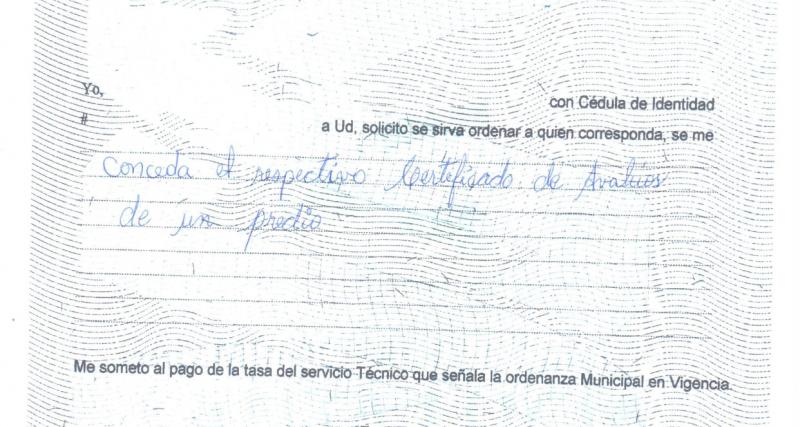 Yo, con Cédula de Identidad
# a Ud, solicito se sirva ordenar a quien corresponda, se me
Conceda el respectivo Certificado de Avalúos
de un predio
Me someto al pago de la tasa del servicio Técnico que señala la ordenanza Municipal en Vigencia.